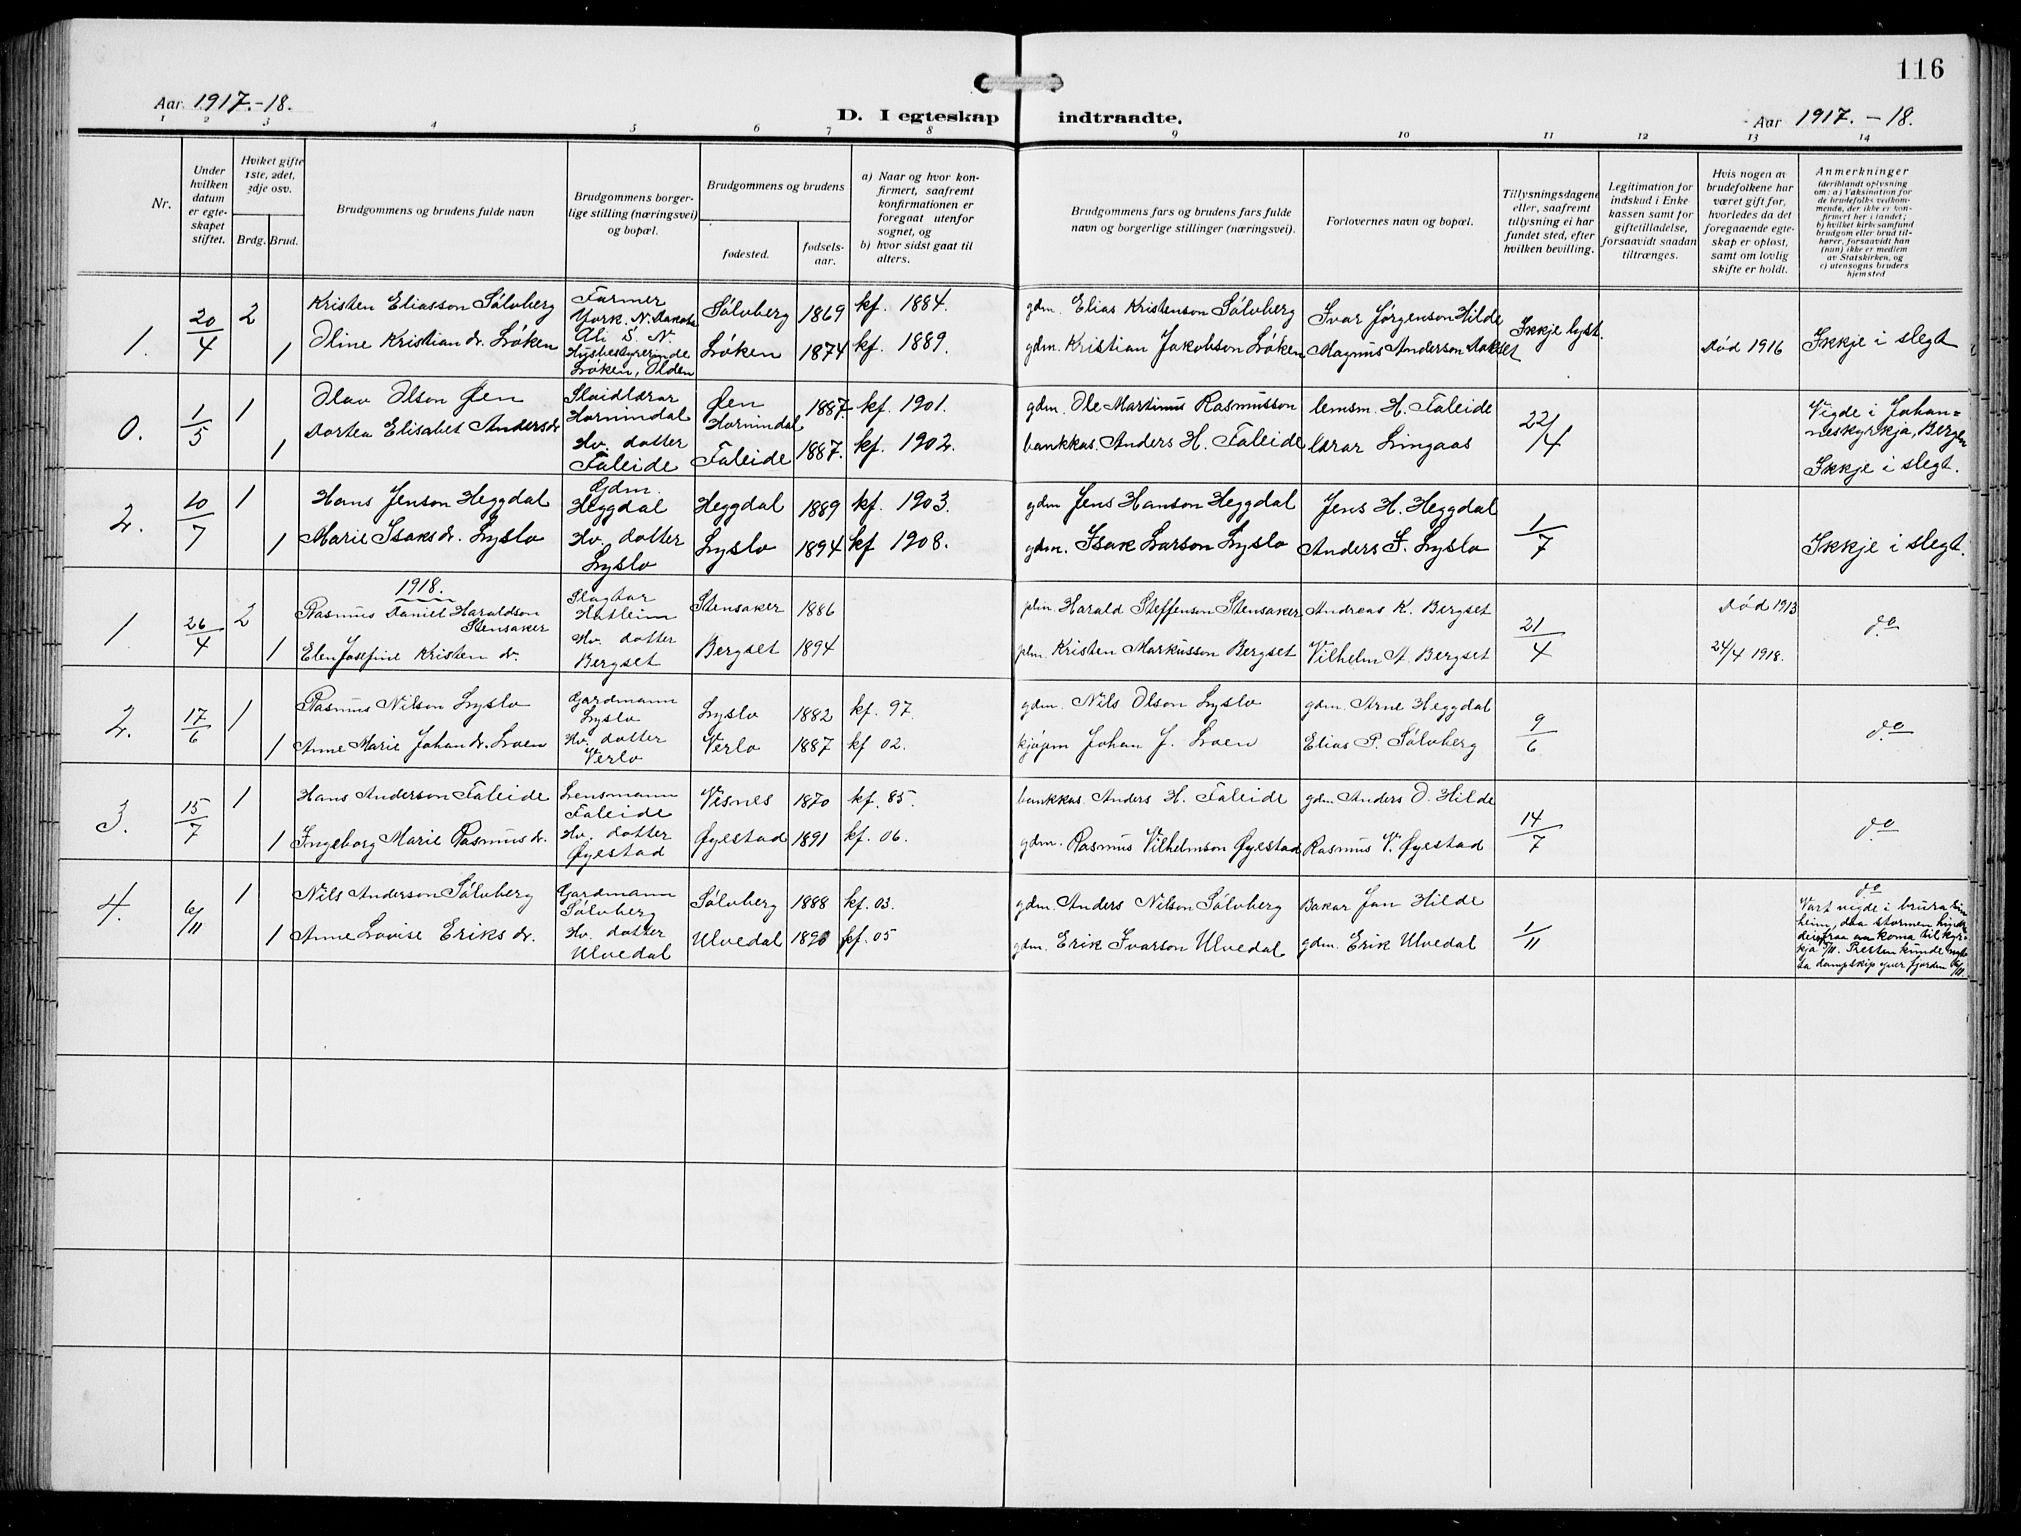 116
Aar 1917.-18.
D. I egteskap indtraadte.
Aar 1917.-18.
1 2 3 4 5 6 7 8 9 10 11 12 13 14
Nr.
Under hvilken datum er egteskapet stiftet.
Hviket gifte 1ste, 2det, 3dje osv.
Brdg. Brud.
Brudgommens og brudens fulde navn
Brudgommens borgerlige stilling (næringsvei) og bopæl.
Brudgommens og brudens
fødested.
fødselsaar.
a) Naar og hvor konfirmert, saafremt konfirmationen er foregaat utenfor sognet, og
b) hvor sidst gaat til alters.
Brudgommens fars og brudens fars fulde navn og borgerlige stillinger (næringsvei).
Forlovernes navn og bopæl.
Tillysningsdagene eller, saafremt tillysning ei har fundet sted, efter hvilken bevilling.
Legitimation for indskud i Enkekassen samt for giftetilladelse, forsaavidt saadan tiltrænges.
Hvis nogen av brudefolkene har været gift før, hvorledes da det foregaaende egteskap er opløst, samt om lovlig skifte er holdt.
Anmerkninger
(deriblandt oplysning om: a) Vaksination for de brudefolks vedkommende, der ikke er konfirmert her i landet; b) hvilket kirkesamfund brudgom eller brud tilhører, forsaavidt han (hun) ikke er medlem av Statskirken, og c) utensogns bruders hjemsted
1. 20/4 2 Kristen Eliasson Sølvberg Farmer York. N. Dakota Sølvberg 1869 kf. 1884. gdm. Elias Kristenson Sølvberg Ivar Jørgenson Hilde Ikkje lyst.
1 Oline Kristian dr. Løken Husbestyrerinde Løken, Olden Løken 1874 kf. 1889. gdm. Kristian Jakobson Løken Magnus Anderson Død 1916 Ikkje i slegt
0. 1/5 1 Olav Olson Øen Sløidlærar Hornindal Øen Hornindal 1887 kf. 1901. gdm. Ole Martinus Rasmusson lensm. H. Faleide 22/4 Vigde i Johanneskyrkja, Bergen
1 Dortea Elisabet Anders dr. Hv. dotter Faleide Faleide 1887. kf. 1902. bankkas. Anders H. Faleide lærar Lingaas Ikkje i slegt.
2. 10/7 1 Hans Jenson Heggdal Gdm. Heggdal Heggdal 1889 kf. 1903. gdm Jens Hanson Heggdal Jens H. Heggdal 1/7
1 Marie Isaks dr. Lyslo Hv. dotter Lyslo Lyslo 1894 kf 1908. gdm. Isak Larson Lyslo Anders I. Lyslo Ikkje i slegt.
1918.
1. 26/4 2 Rasmus Daniel Haraldson Stensaker Slagtar Hatleim Stensaker 1886 plm. Harald Steffenson Stensaker Andreas K. Bergset 21/4 Død 1913
1 Elen Josefine Kristen dr. Hv. dotter Bergset Bergset 1894 plm. Kristen Markusson Bergset Vilhelm A. Bergset 24/4 1918. do
2. 17/6 1 Rasmus Nilson Lyslo Gardmann Lyslo Lyslo 1882 kf. 97. gdm. Nils Olson Lyslo gdm. Arne Heggdal 9/6
1 Anne Marie Johan dr. Loen Hv. dotter Verlo Verlo 1887 kf 02. Johan J. Loen Elias P. Sølvberg do
3. 15/7 1 Hans Anderson Faleide Lensmann Faleide Visnes 1870 kf. 85. bankkas. Anders H. Faleide gdm Anders D. Hilde 14/7
1 Ingeborg Marie Rasmus dr. Hv. dotter Øyestad Øyestad 1891 kf. 06. gdm. Rasmus Vilhelmson Øyestad Rasmus V. Øyestad do
4. 6/11 1 Nils Anderson Sølvberg Gardmann Sølvberg Sølvberg 1888 kf. 03. gdm. Anders Nilson Sølvberg Bakar Jan Hilde 1/11 do
1 Anne Lovise Eriks dr. Hv. dotter Ulvedal Ulvedal 1890 kf. 05 gdm. Erik Ivarson Ulvedal gdm. Erik Ulvedal Vart vigde i brura sin heim, daa stormen hindra dei fraa aa koma til kyrkja 5/11. Presten kunde ta dampskip yver fjorden 6/11.